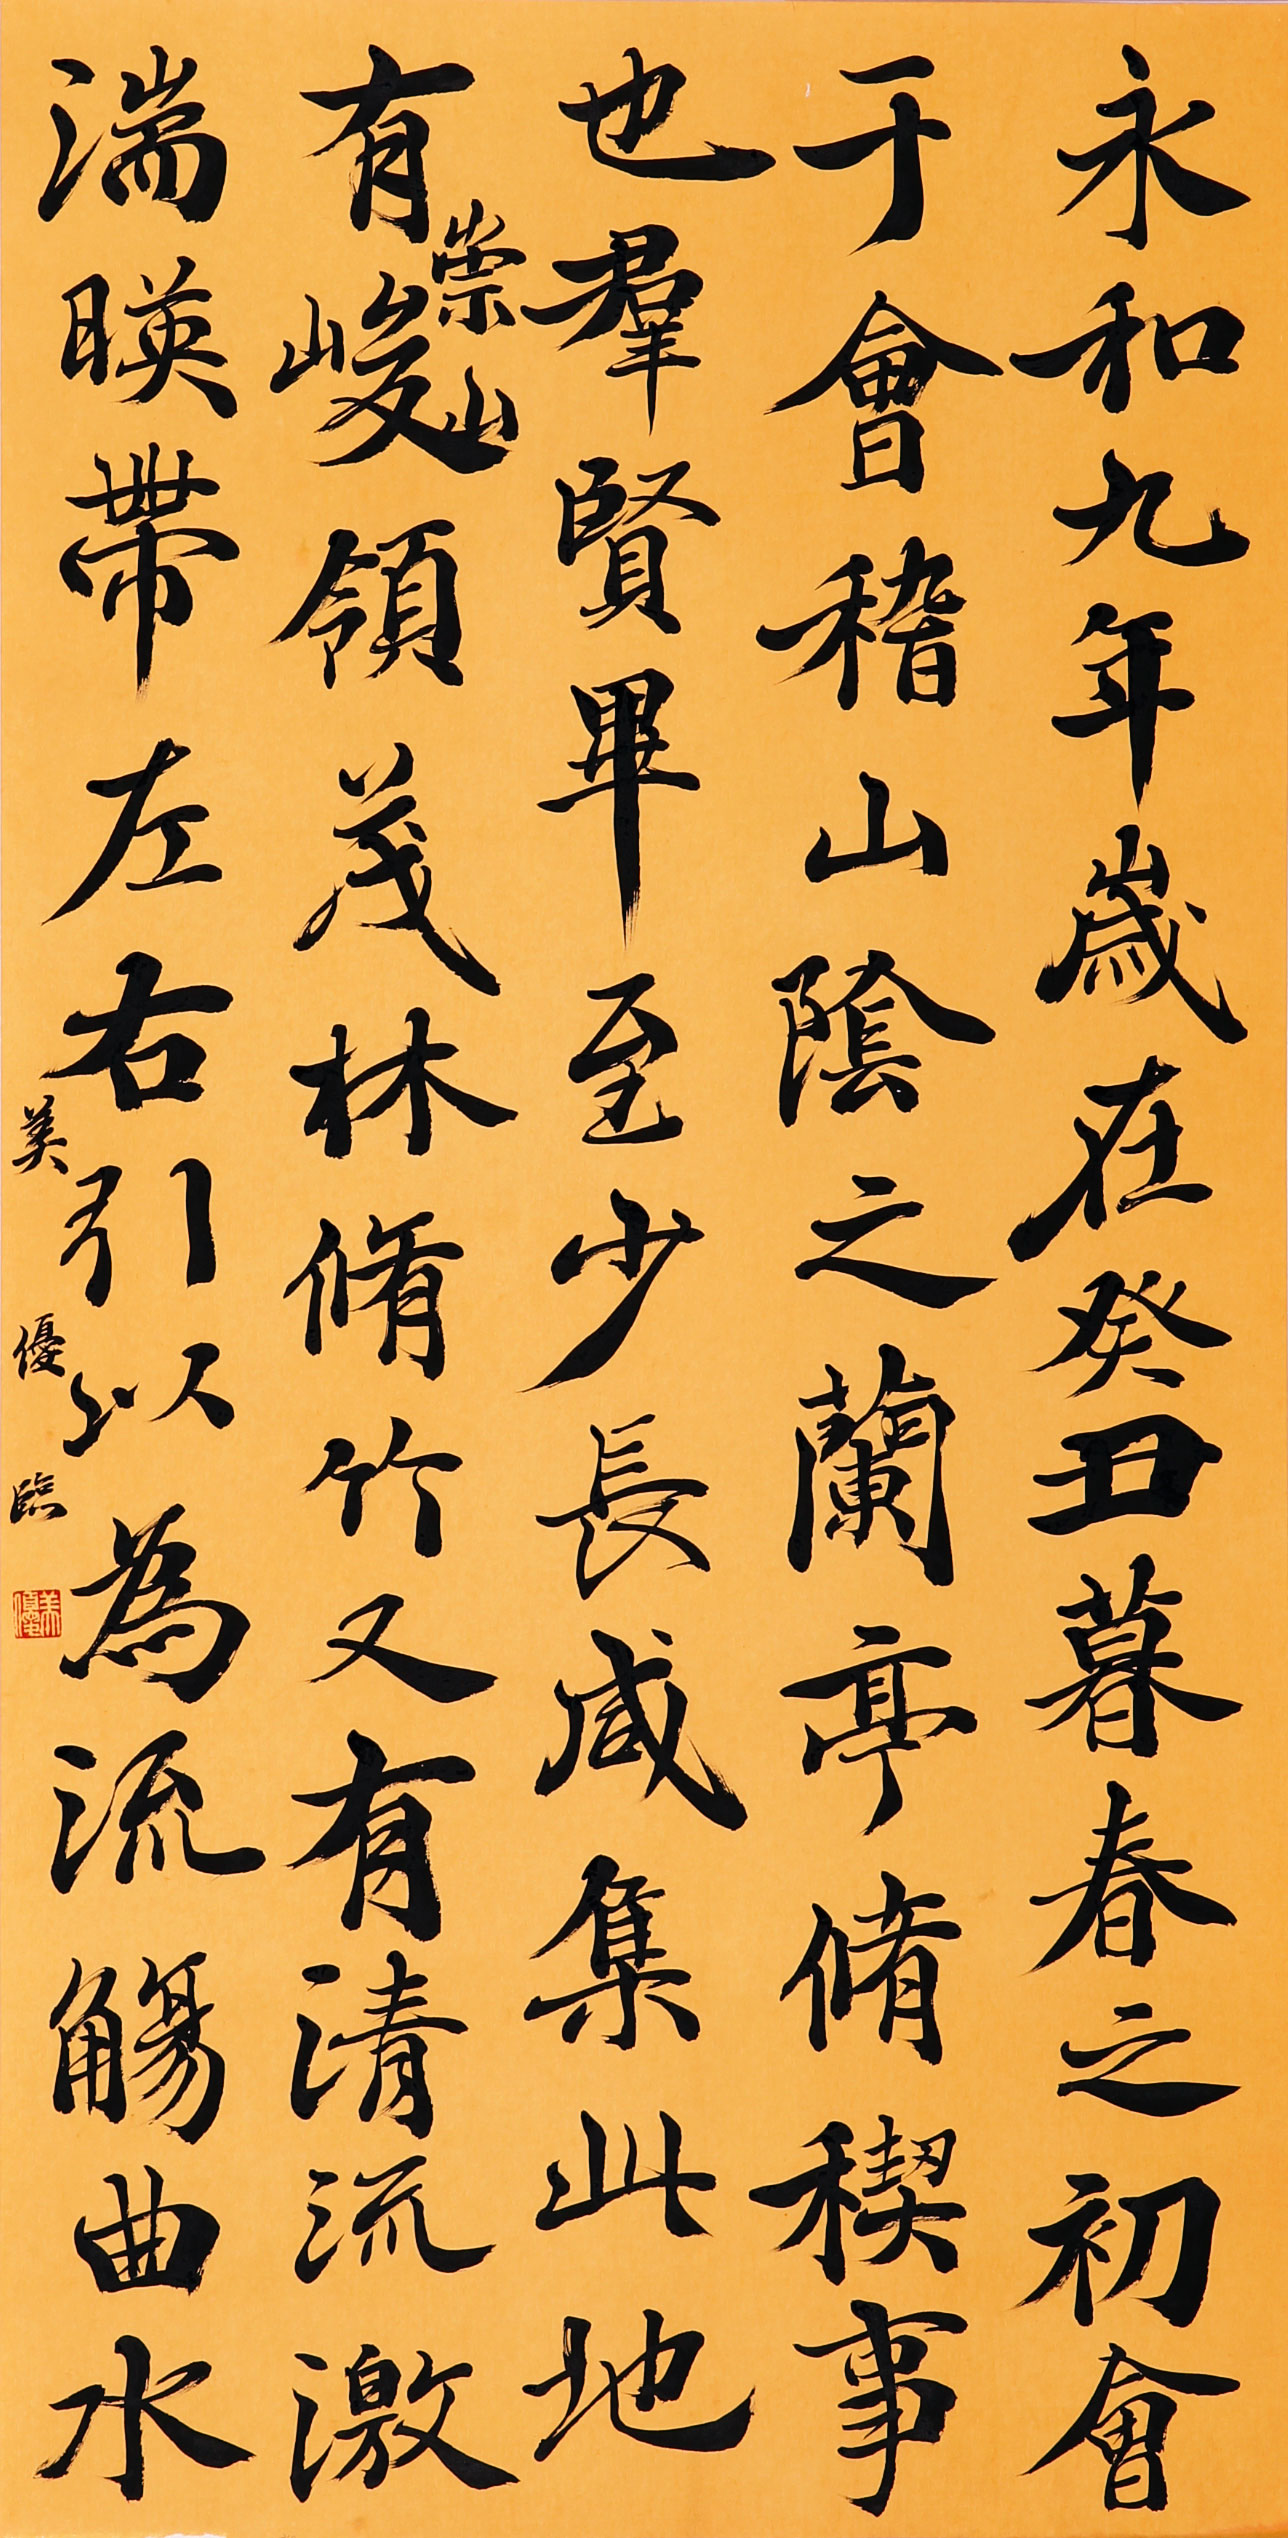 永和九年歲在癸丑暮春之初會
于會稽山陰之蘭亭脩稧事
也羣賢畢至少長咸集此地
有崇山峻領茂林脩竹又有清流激
湍暎帶左右引以為流觴曲水
美優臨
美優